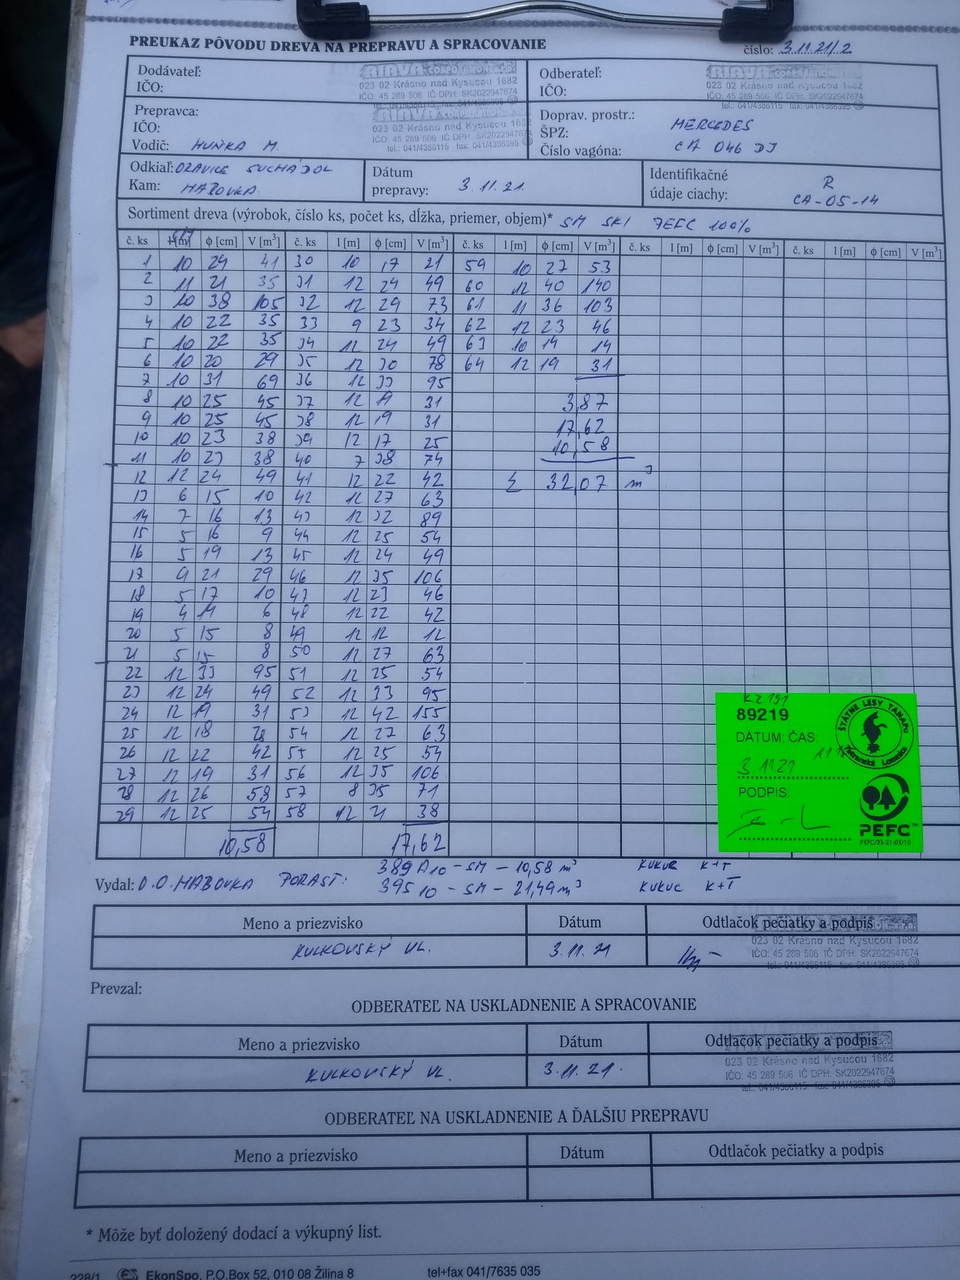 PREUKAZ PÔVODU DREVA NA PREPRAVU A SPRACOVANIE
číslo: 3.11.21/2
Dodávateľ:
IČO:
023 02 Krásno nad Kysucou 1682
IČO: 45 289 506 IČ DPH: SK2022947674
Odberateľ:
IČO:
023 02 Krásno nad Kysucou 1682
IČO: 45 289 506 IČ DPH: SK2022947674
tel.: 041/4386115
Prepravca:
IČO:
Vodič: HUŇKA M.
023 02 Krásno nad Kysucou 1682
IČO: 45 289 506 IČ DPH: SK2022947674
tel.: 041/4386115 fax: 041/4386395
Doprav. prostr.: MERCEDES
ŠPZ:
Číslo vagóna: CA 046 DJ
Odkiaľ: ORAVICE SUCHÁ DOL
Kam: HABOVKA
Dátum
prepravy: 3.11.21.
Identifikačné
údaje ciachy: R
CA-05-14
Sortiment dreva (výrobok, číslo ks, počet ks, dĺžka, priemer, objem)* SM SKI PEFC 100%
č. ks l [m] ϕ [cm] V [m³] č. ks l [m] ϕ [cm] V [m³] č. ks l [m] ϕ [cm] V [m³] č. ks l [m] ϕ [cm] V [m³] č. ks l [m] ϕ [cm] V [m³]
1 10 24 41 30 10 17 21 59 10 27 53
2 11 21 35 31 12 24 49 60 12 40 140
3 10 38 105 32 12 29 73 61 11 36 103
4 10 22 35 33 9 23 34 62 12 23 46
5 10 22 35 34 12 24 49 63 10 14 14
6 10 20 29 35 12 30 78 64 12 19 31
7 10 31 69 36 12 33 95
8 10 25 45 37 12 19 31 3,87
9 10 25 45 38 12 19 31 17,62
10 10 23 38 39 12 17 25 10,58
11 10 23 38 40 7 38 74
12 12 24 49 41 12 22 42 Σ 32,07 m³
13 6 15 10 42 12 27 63
14 7 16 13 43 12 32 89
15 5 16 9 44 12 25 54
16 5 19 13 45 12 24 49
17 9 21 29 46 12 35 106
18 5 17 10 47 12 23 46
19 4 14 6 48 12 22 42
20 5 15 8 49 12 12 12
21 5 15 8 50 12 27 63
22 12 33 95 51 12 25 54
23 12 24 49 52 12 33 95
24 12 19 31 53 12 42 155
25 12 18 28 54 12 27 63
26 12 22 42 55 12 25 54
27 12 19 31 56 12 35 106
28 12 26 58 57 8 35 71
29 12 25 54 58 12 21 38
10,58 17,62
KZ 191
89219
DÁTUM, ČAS:
3.11.21
PODPIS:
ŠTÁTNE LESY TANAPU
Tatranská Lomnica
PEFC™
PEFC/23-21-03/15
389 A10 - SM - 10,58 m³ KUKUC K+T
Vydal: O.O. HABOVKA PORAST: 395 10 - SM - 21,49 m³ KUKUC K+T
Meno a priezvisko Dátum Odtlačok pečiatky a podpis
KULKOVSKÝ VL. 3.11.21
023 02 Krásno nad Kysucou 1682
IČO: 45 289 506 IČ DPH: SK2022947674
tel.: 041/4386115 fax: 041/4386395
Prevzal:
ODBERATEĽ NA USKLADNENIE A SPRACOVANIE
Meno a priezvisko Dátum Odtlačok pečiatky a podpis
KULKOVSKÝ VL. 3.11.21.
023 02 Krásno nad Kysucou 1682
IČO: 45 289 506 IČ DPH: SK2022947674
tel.: 041/4386115 fax: 041/4386395
ODBERATEĽ NA USKLADNENIE A ĎALŠIU PREPRAVU
Meno a priezvisko Dátum Odtlačok pečiatky a podpis
* Môže byť doložený dodací a výkupný list.
228/1 EkonSpo, P.O.Box 52, 010 08 Žilina 8 tel+fax 041/7635 035